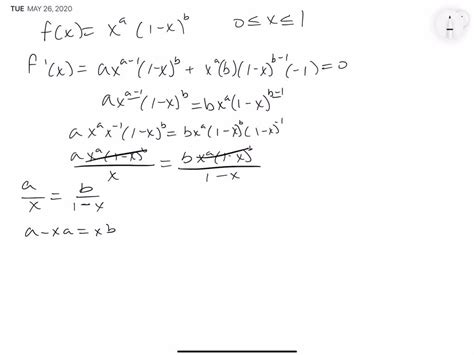 TUE MAY 26, 2020
f(x) = x^a (1-x)^b    0 ≤ x ≤ 1
f'(x) = ax^(a-1)(1-x)^b + x^a(b)(1-x)^(b-1)(-1) = 0
ax^(a-1)(1-x)^b = bx^a(1-x)^(b-1)
ax^a x^-1(1-x)^b = bx^a(1-x)^b(1-x)^-1
ax^a(1-x)^b/x = bx^a(1-x)^b/(1-x)
a/x = b/(1-x)
a-xa = xb